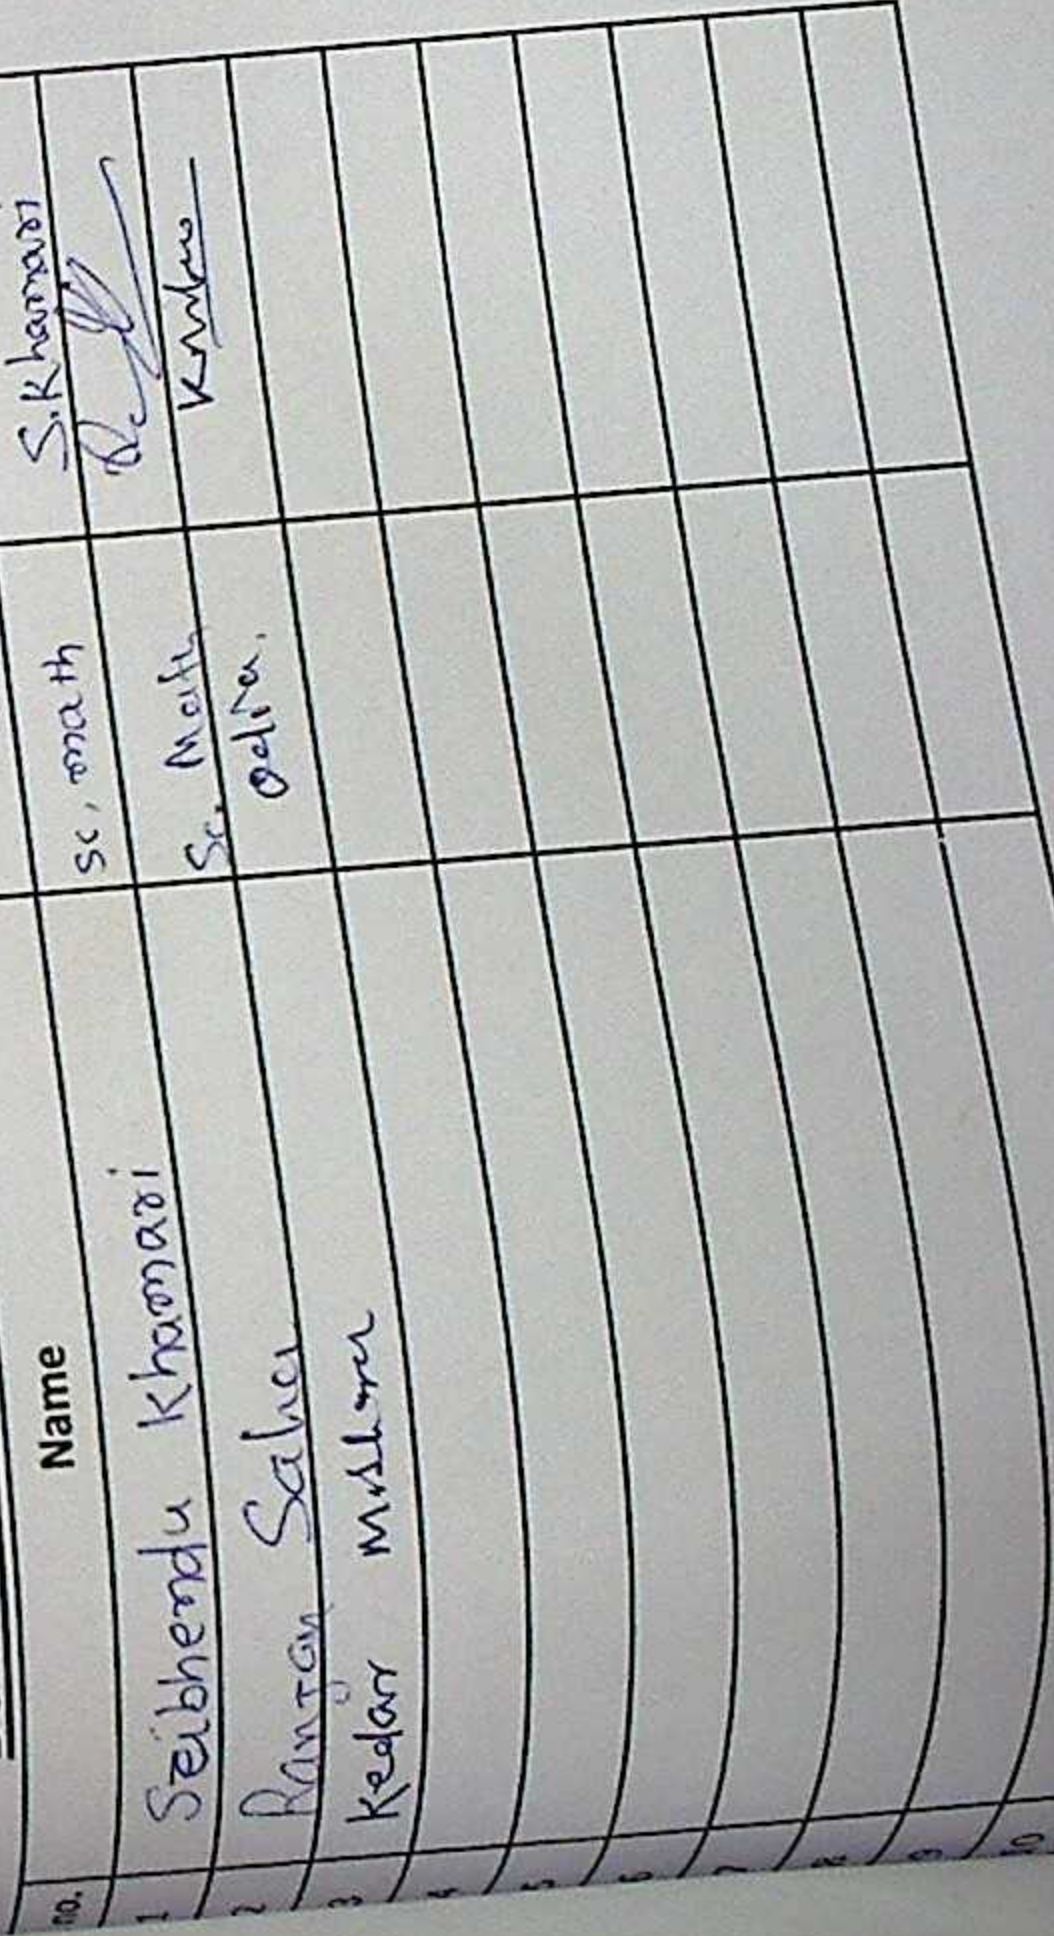 no. Name
1 Sribhendu Khamari sc, math S.Khamari
2 Ranjan Sahu
3 Kedar Mishra Sc. Math,
Odia.
4
5
6
7
8
9
10